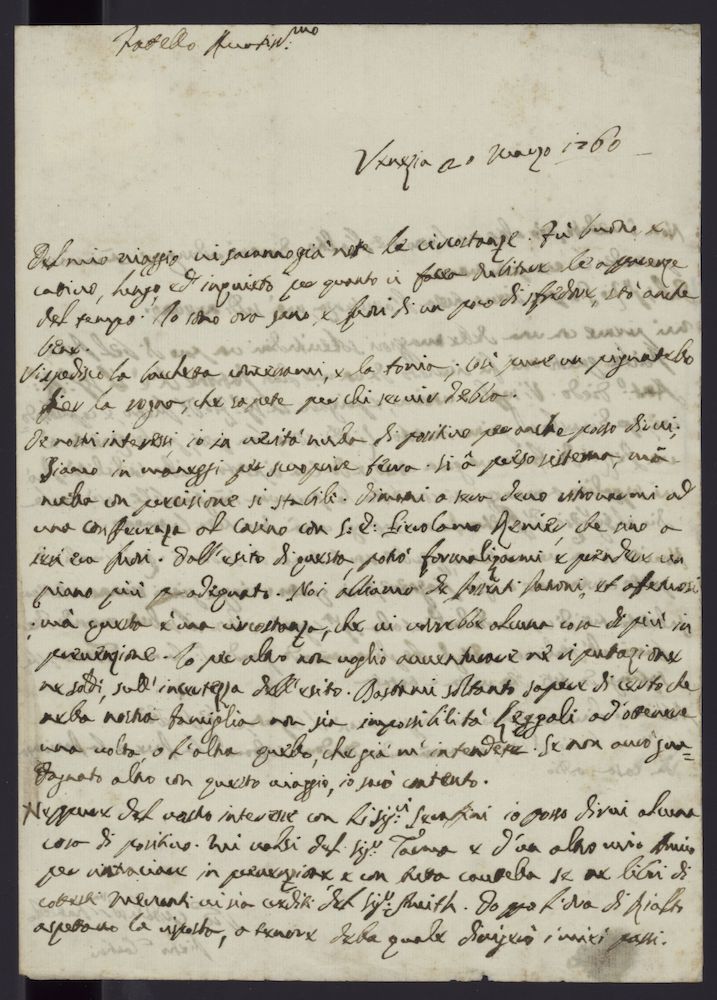 Fratello Amatiss:mo
Venezia 20 Marzo 1760
Del mio viaggio vi saranno già note le circostanze. Fù buono e
cattivo, lungo, ed inquieto per quanto vi fecero dubitare le apparenze
del tempo. Io sono ora sano e fuori di un poco di sfredore, stò anche
bene.
Vi spedisco la barchetta, e la tonia; così pure un pignatello
per la rogna, che sapete per chi servir debba.
De nostri interessi io in verità nulla di positivo per anche posso dirvi;
Siamo in maneggi per scuoprire terra. Si à perso sistema, mà
nulla con precisione si stabilì. Dimani a sera devo ritrovarmi ad
una conferenza al Casino con S: E: Girolamo Renier, che sino a
ieri era fuori. Dall'esito di questa potrò formalizarmi e prendere un
piano più adequato. Noi abbiamo de potenti Padroni, et affettuosi
; mà questa è una circostanza, che vi vorrebbe alcuna cosa di più in
prevenzione. Io per altro non voglio avventurare nè riputazione
nè soldi, sull'incertezza dell'esito. Bastami soltanto sapere di certo che
nella nostra famiglia non sia impossibilità leggali ad ottenere
una volta, o l'altra quello, che già m'intendete. Se non avrò gua=
dagnato altro con questo viaggio, io sarò contento.
Neppure del vostro interesse con li Sig:ri Serafini io posso dirvi alcuna
cosa di positivo. Mi valsi del Sig:r e d'un altro mio Amico
per rintracciare in prevenzione e con tutta cautella se ne libri di
cotesti Mercanti vi sia crediti del Sig:r Smith. Doppo l'ora di Rialto
aspettavo la risposta, a tenore della quale dirigerò i miei passi.